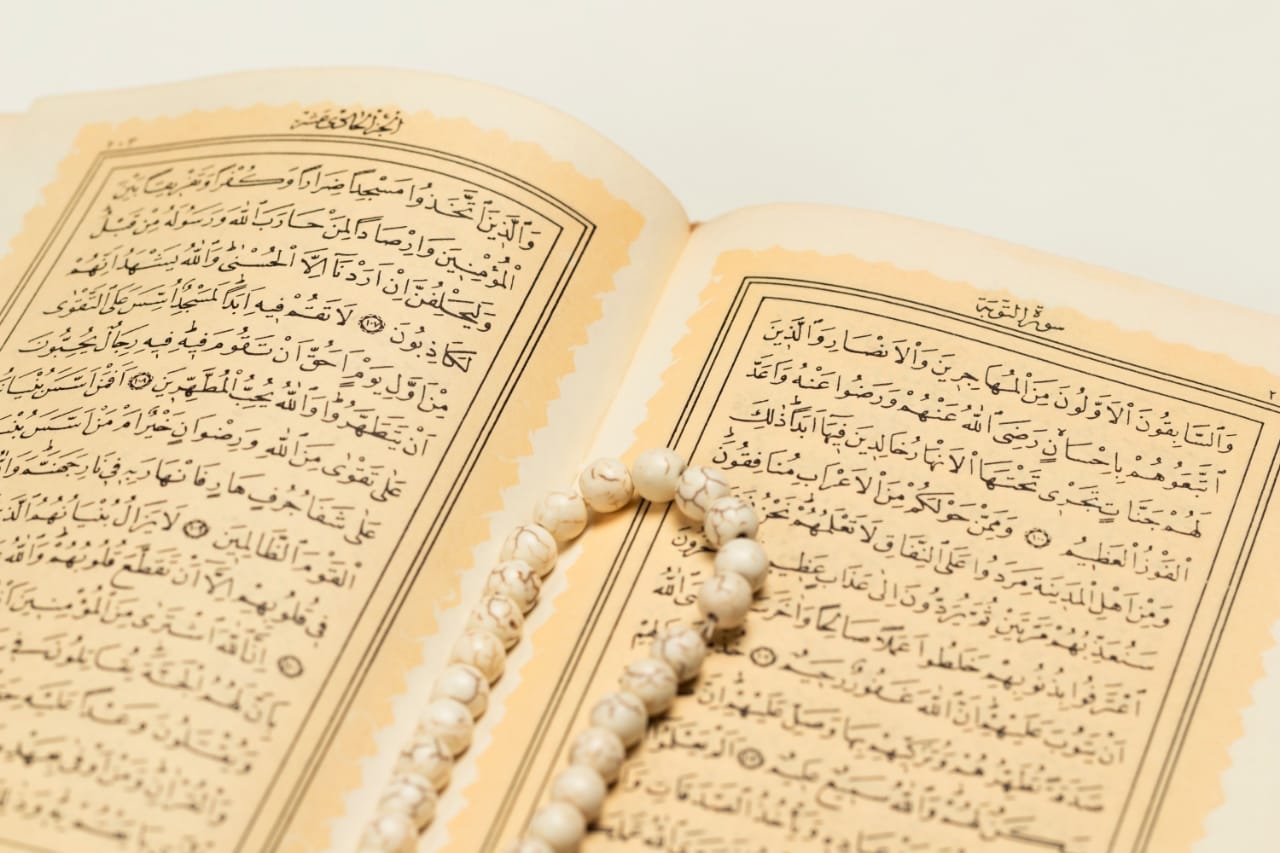 سورة التوبة
وَالسَّابِقُونَ الْاَوَّلُونَ مِنَ الْمُهَاجِرِينَ وَالْاَنْصَارِ وَالَّذِينَ
اتَّبَعُوهُمْ بِاِحْسَانٍ رَضِيَ اللّٰهُ عَنْهُمْ وَرَضُوا عَنْهُ وَاَعَدَّ
لَهُمْ جَنَّاتٍ تَجْرِي تَحْتَهَا الْاَنْهَارُ خَالِدِينَ فِيهَا اَبَدًا ذٰلِكَ
الْفَوْزُ الْعَظِيمُ ﴿١٠٠﴾ وَمِمَّنْ حَوْلَكُمْ مِنَ الْاَعْرَابِ مُنَافِقُونَ
وَمِنْ اَهْلِ الْمَدِينَةِ مَرَدُوا عَلَى النِّفَاقِ لَا تَعْلَمُهُمْ نَحْنُ
سَنُعَذِّبُهُمْ مَرَّتَيْنِ ثُمَّ يُرَدُّونَ اِلٰى عَذَابٍ عَظِيمٍ
اعْتَرَفُوا بِذُنُوبِهِمْ خَلَطُوا عَمَلًا صَالِحًا وَاٰخَرَ اللّٰهُ
اَنْ يَتُوبَ عَلَيْهِمْ اِنَّ اللّٰهَ غَفُورٌ رَحِيمٌ
صَدَقَةً تُطَهِّرُهُمْ وَتُزَكِّيهِمْ بِهَا وَصَلِّ عَلَيْهِمْ اِنَّ
سَكَنٌ لَهُمْ وَاللّٰهُ سَمِيعٌ عَلِيمٌ
وَيَأْخُذُ الصَّدَقَاتِ
الجزء الحادي عشر
٢٠٣
وَالَّذِينَ اتَّخَذُوا مَسْجِدًا ضِرَارًا وَكُفْرًا وَتَفْرِيقًا بَيْنَ
الْمُؤْمِنِينَ وَاِرْصَادًا لِمَنْ حَارَبَ اللّٰهَ وَرَسُولَهُ مِنْ قَبْلُ
وَلَيَحْلِفُنَّ اِنْ اَرَدْنَا اِلَّا الْحُسْنٰى وَاللّٰهُ يَشْهَدُ اِنَّهُمْ
لَكَاذِبُونَ ﴿١٠٧﴾ لَا تَقُمْ فِيهِ اَبَدًا لَمَسْجِدٌ اُسِّسَ عَلَى التَّقْوٰى
مِنْ اَوَّلِ يَوْمٍ اَحَقُّ اَنْ تَقُومَ فِيهِ فِيهِ رِجَالٌ يُحِبُّونَ
اَنْ يَتَطَهَّرُوا وَاللّٰهُ يُحِبُّ الْمُطَّهِّرِينَ ﴿١٠٨﴾ اَفَمَنْ اَسَّسَ بُنْيَانَهُ
عَلٰى تَقْوٰى مِنَ اللّٰهِ وَرِضْوَانٍ خَيْرٌ اَمْ مَنْ اَسَّسَ
عَلٰى شَفَا جُرُفٍ هَارٍ فَانْهَارَ بِهِ فِي نَارِ جَهَنَّمَ
الْقَوْمَ الظَّالِمِينَ ﴿١٠٩﴾ لَا يَزَالُ بُنْيَانُهُمُ
فِي قُلُوبِهِمْ اِلَّا اَنْ تَقَطَّعَ قُلُوبُهُمْ وَاللّٰهُ
اِنَّ اللّٰهَ اشْتَرٰى مِنَ الْمُؤْمِنِينَ
بِاَنَّ لَهُمُ الْجَنَّةَ يُقَاتِلُونَ فِي
وَيُقْتَلُونَ وَعْدًا عَلَيْهِ
وَالْقُرْاٰنِ وَمَنْ اَوْفٰى بِعَهْدِهِ